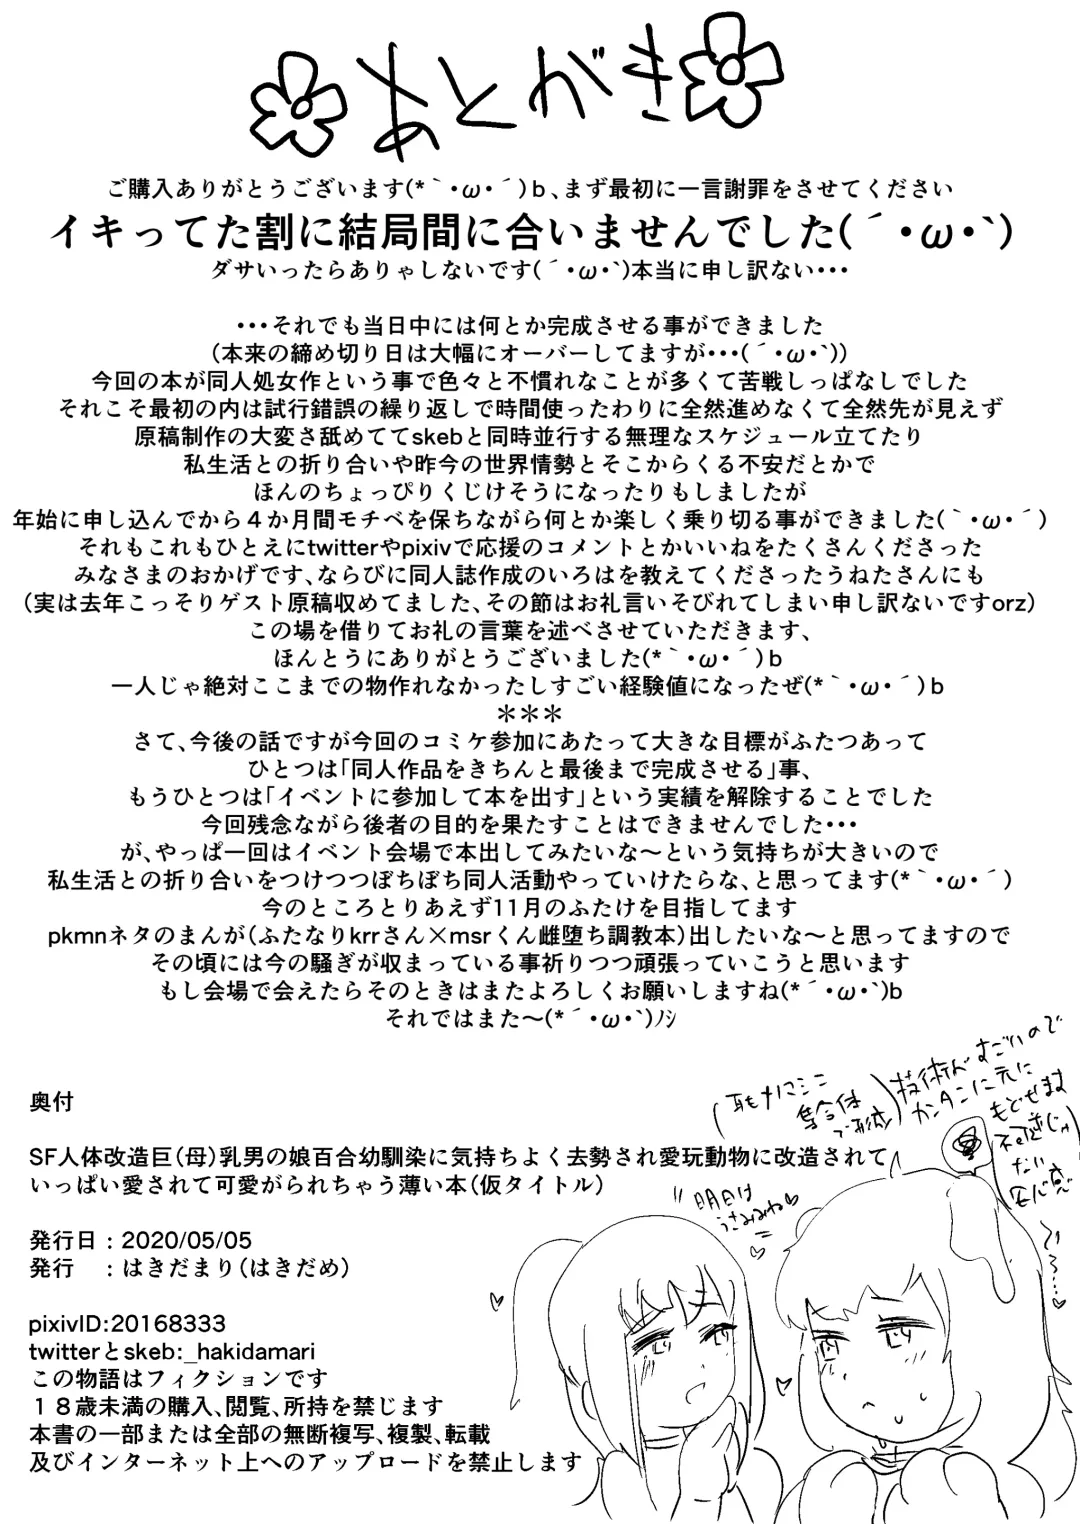 あとがき
ご購入ありがとうございます(*｀・ω・´)ｂ、まず最初に一言謝罪をさせてください
イキってた割に結局間に合いませんでした(´・ω・`)
ダサいったらありゃしないです(´・ω・`)本当に申し訳ない・・・
・・・それでも当日中には何とか完成させる事ができました
(本来の締め切り日は大幅にオーバーしてますが・・・(´・ω・`))
今回の本が同人処女作という事で色々と不慣れなことが多くて苦戦しっぱなしでした
それこそ最初の内は試行錯誤の繰り返しで時間使ったわりに全然進めなくて全然先が見えず
原稿制作の大変さ舐めててskebと同時並行する無理なスケジュール立てたり
私生活との折り合いや昨今の世界情勢とそこからくる不安だとかで
ほんのちょっぴりくじけそうになったりもしましたが
年始に申し込んでから４か月間モチベを保ちながら何とか楽しく乗り切る事ができました(｀・ω・´)
それもこれもひとえにtwitterやpixivで応援のコメントとかいいねをたくさんくださった
みなさまのおかげです、ならびに同人誌作成のいろはを教えてくださったうねたさんにも
(実は去年こっそりゲスト原稿収めてました、その節はお礼言いそびれてしまい申し訳ないですorz)
この場を借りてお礼の言葉を述べさせていただきます、
ほんとうにありがとうございました(*｀・ω・´)ｂ
一人じゃ絶対ここまでの物作れなかったしすごい経験値になったぜ(*｀・ω・´)ｂ
＊＊＊
さて、今後の話ですが今回のコミケ参加にあたって大きな目標がふたつあって
ひとつは「同人作品をきちんと最後まで完成させる」事、
もうひとつは「イベントに参加して本を出す」という実績を解除することでした
今回残念ながら後者の目的を果たすことはできませんでした・・・
が、やっぱ一回はイベント会場で本出してみたいな～という気持ちが大きいので
私生活との折り合いをつけつつぼちぼち同人活動やっていけたらな、と思ってます(*｀・ω・´)
今のところとりあえず11月のふたけを目指してます
pkmnネタのまんが(ふたなりkrrさん×msrくん雌堕ち調教本)出したいな～と思ってますので
その頃には今の騒ぎが収まっている事祈りつつ頑張っていこうと思います
もし会場で会えたらそのときはまたよろしくお願いしますね(*´・ω・`)b
それではまた～(*´・ω・`)ﾉｼ
技術がすごいので
カンタンに元に
もどせます
ない
安心感
明日は
うさみみね
奥付
SF人体改造巨(母)乳男の娘百合幼馴染に気持ちよく去勢され愛玩動物に改造されて
いっぱい愛されて可愛がられちゃう薄い本(仮タイトル)
発行日：2020/05/05
発行　：はきだまり(はきだめ)
pixivID:20168333
twitterとskeb:_hakidamari
この物語はフィクションです
１８歳未満の購入、閲覧、所持を禁じます
本書の一部または全部の無断複写、複製、転載
及びインターネット上へのアップロードを禁止します